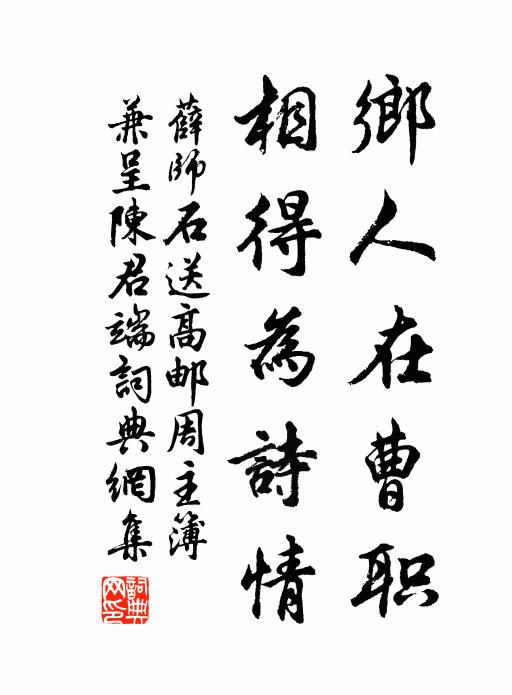 鄉人在曹职
相得為詩情
薛師石送高邮周主簿
兼呈陳君端詞典網集
詞典
网印